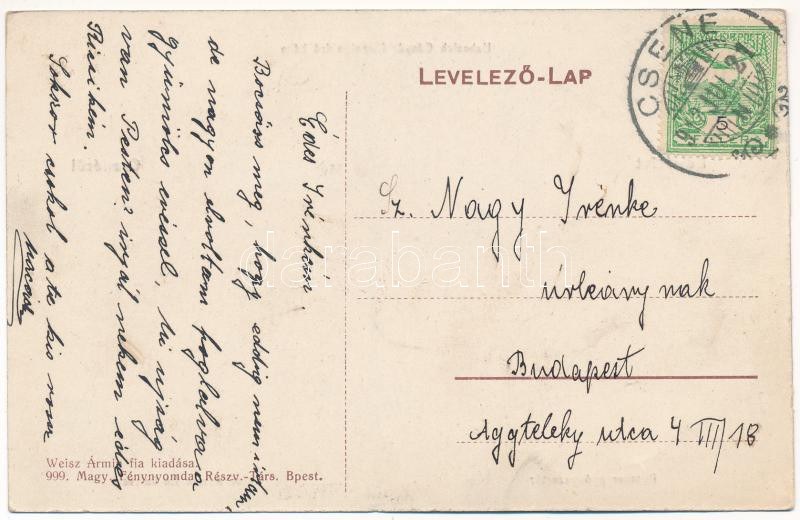 LEVELEZŐ-LAP
CSENE
MAGYAR KIR. POSTA
5
Sz. Nagy Irénke
úrleánynak
Budapest
Aggteleky utca 4 III/18
Édes Irénkém!
Bocsáss meg, hogy eddig nem írtam,
de nagyon el voltam foglalva a
gyümölcs evéssel, mi ujság
van Pesten? irjál nekem édes
Riricikém.
Sokszor csókol a te kis
Weisz Ármin fia kiadása.
999. Magy. Fénynyomdai Részv.-Társ. Bpest.
darabanth